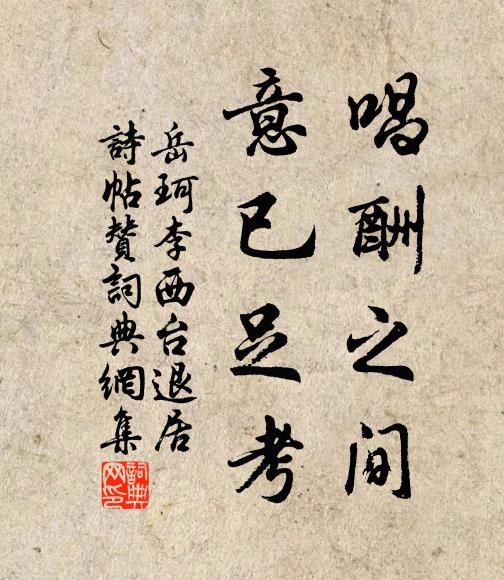 唱酬之间
意已足考
岳珂李西台退居
詩帖赞詞典網集
詞典
网印